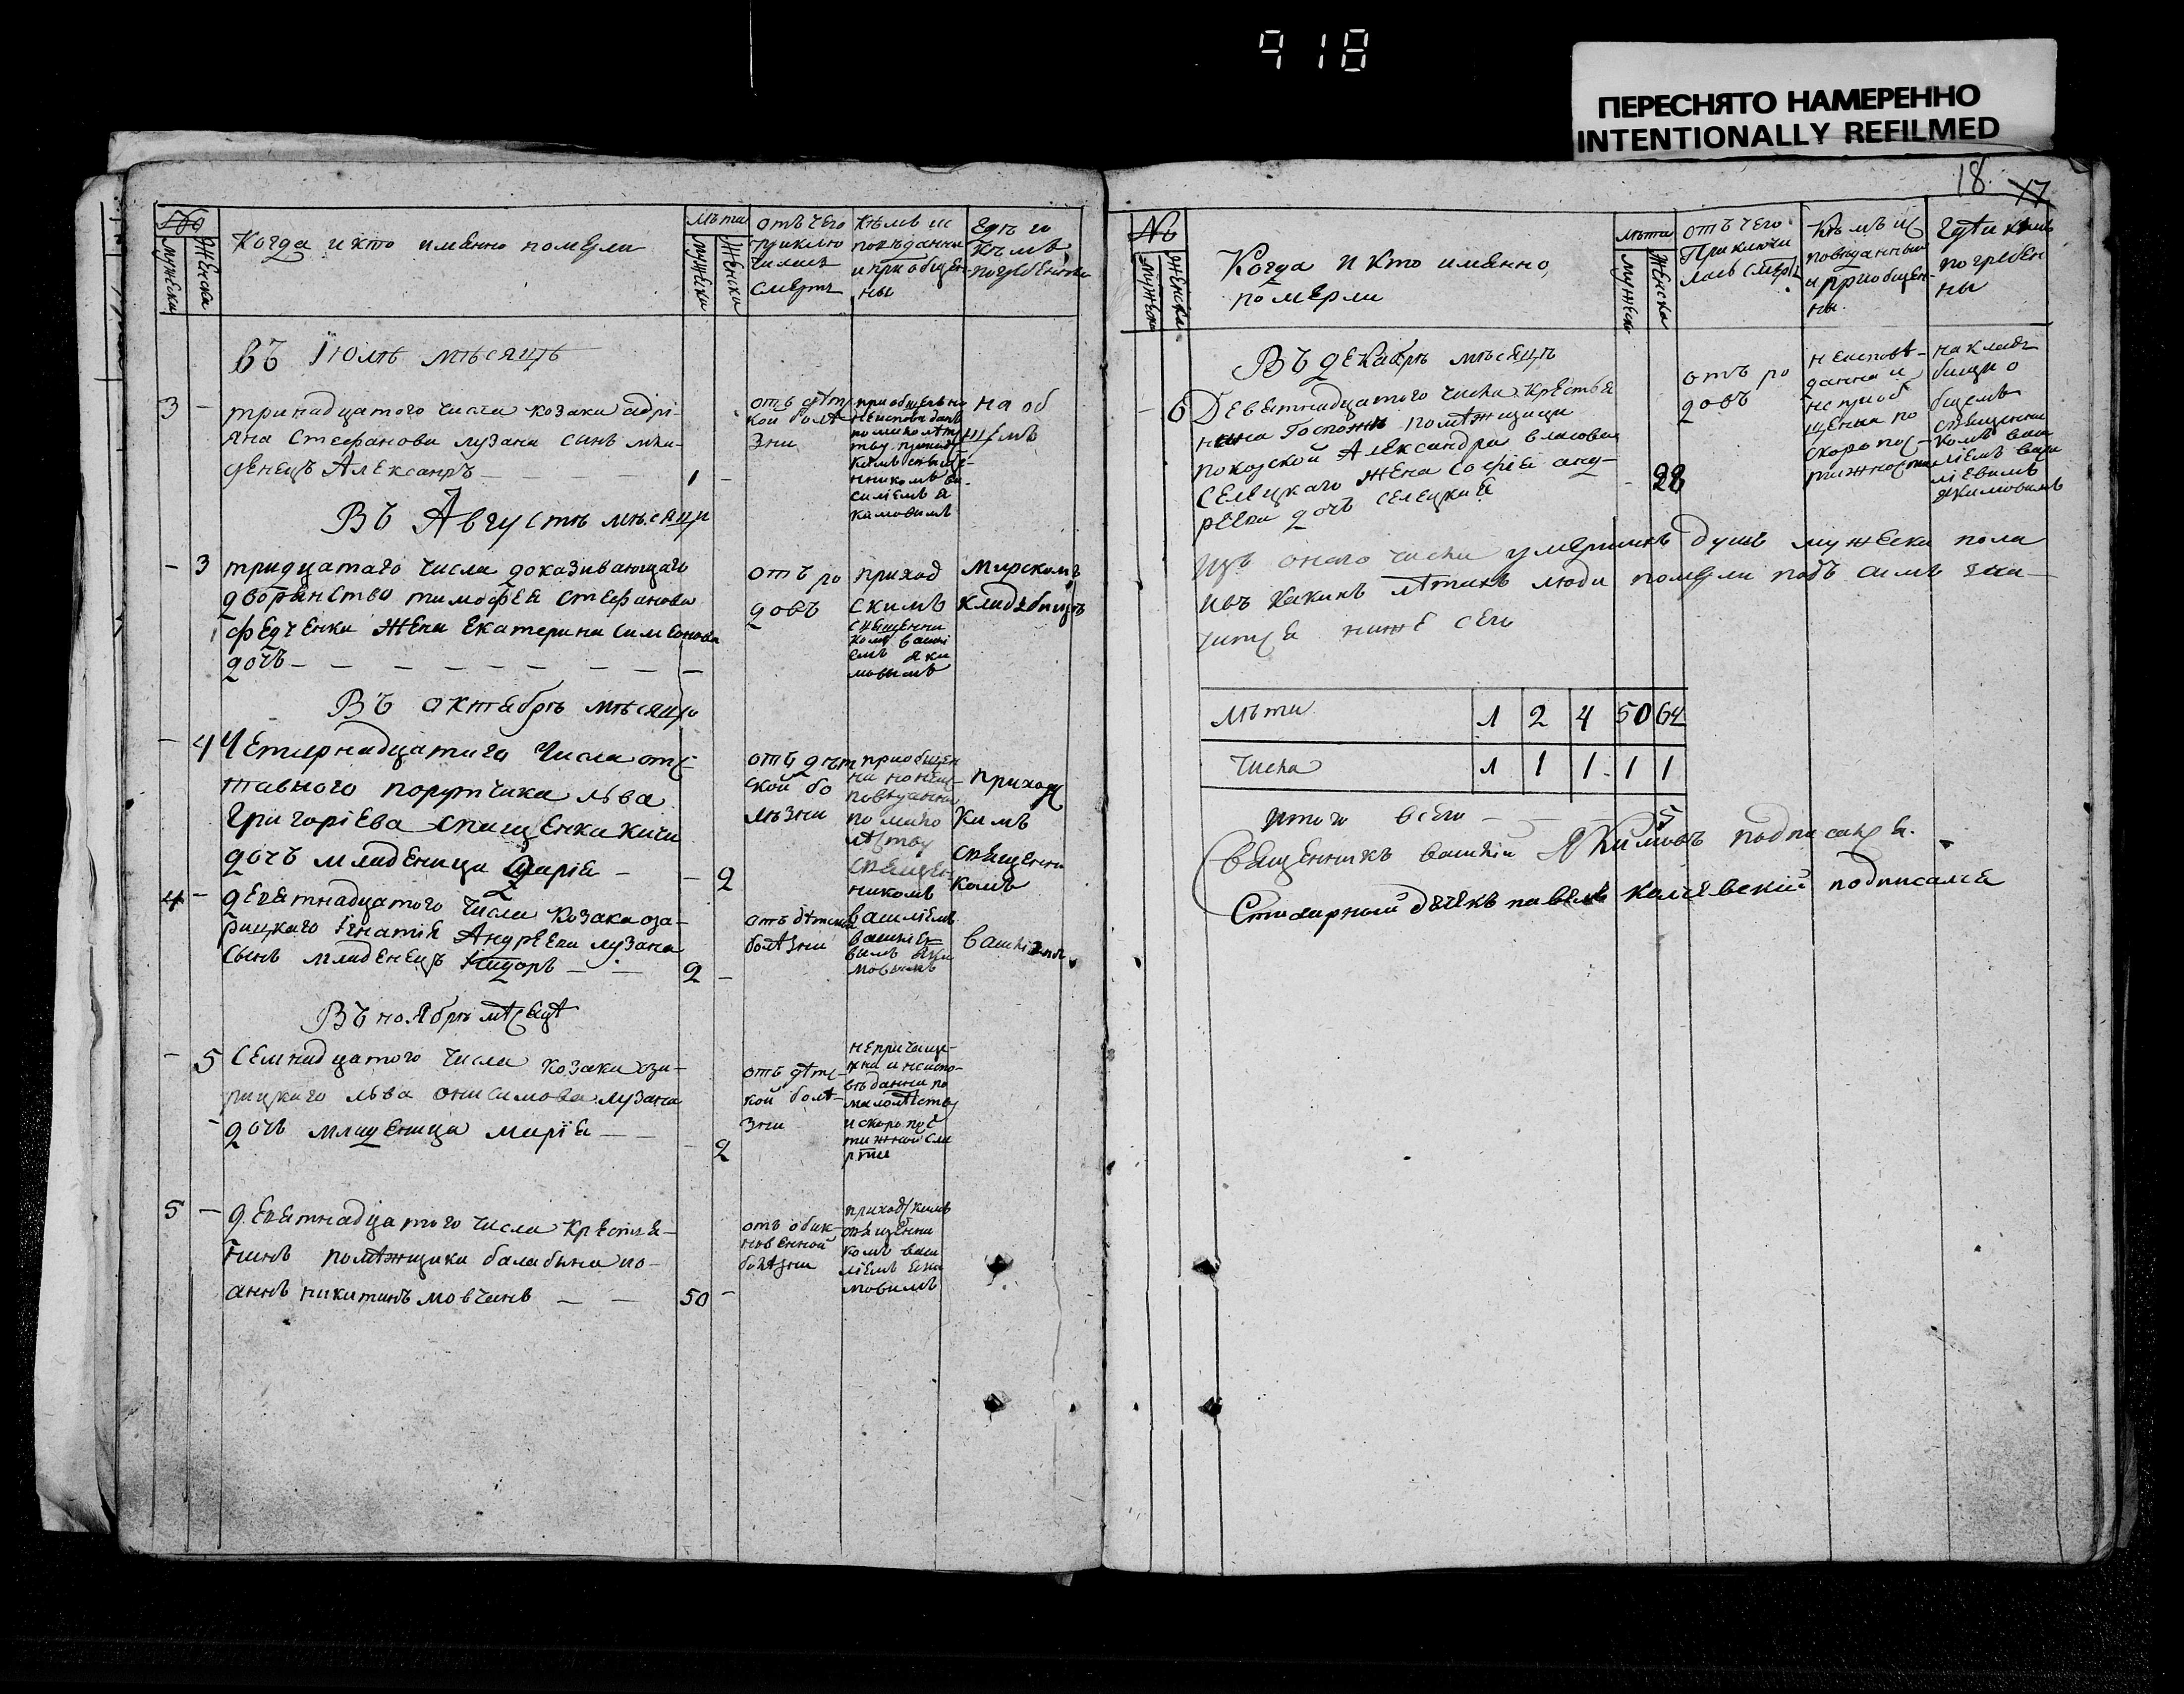 918
ПЕРЕСНЯТО НАМЕРЕННО
INTENTIONALLY REFILMED
№
мужеска
женска
Когда и кто именно померли
лѣта
мужеска
женска
отъ чего
приклю
чилась
смерть
кѣмъ ис
повѣданны
и приобщен-
ны
гдѣ и
кѣмъ
погребенны
Въ Іюлѣ мѣсяцѣ
3 -
тринадцатого числа козака адрі-
яна Стефанова лузана сынъ мла-
денецъ Александръ
1 -
отъ дѣтс
кой болѣ-
зни
на об
щемъ
Въ Августѣ мѣсяцѣ
- 3
тридцатаго числа доказивающаго
дворянство тимофея Стефанова
федченка жена Екатерина Симеонова
дочъ
отъ ро
довъ
приход
скимъ
священни
комъ васи
емъ яки
мовымъ
мирскомъ
кладъбищѣ
Въ октябрѣ мѣсяцѣ
- 4
Четырнадцатого Числа отс
тавного порутчика льва
Григоріева спищенка
дочъ младеница Марія
- 2
отъ дѣт
ской бо
лѣзни
приобщен
на
по мало
лѣтству
священ
никомъ
василіемъ
приход
кимъ
священни
комъ
василіем
4 -
девятнадцатого числа козака оза-
рицкаго Игнатія Андреева лузана
сынъ младенецъ
2 -
отъ дѣтской
болѣзни
Въ ноябрѣ мѣсецѣ
- 5
Семнадцатого числа козака оза-
рицкаго льва онисимова лузана
дочъ младеница марія
- 2
отъ дѣтс-
кой болѣ-
зни
непричаще-
нна и неиспо-
вѣданна по
малолѣтству
и скоропос
тижной сме
рти
5 -
девятнадцатого числа крестья-
нинъ помѣжщика балабина ио-
аннъ никитинъ мовчанъ
50 -
отъ обик-
новенной
болѣзни
приходскимъ
священни
комъ васи
ліемъ яки
мовимъ
18 17
№
мужеска
женска
Когда и кто именно
померли
лѣта
мужеска
женска
отъ чего
Приключи
лась смерть
кѣмъ ис
повѣданныи
и приобщен-
ны.
гдѣ и кѣмъ
погребен
ны
Въ декабрѣ мѣсяцѣ
- 6
Девятнадцатого числа крестья
нина Госпожи помѣжщици
покорской Александра власова
Селецкаго жена Софія анд-
реева дочъ селецкая
- 28
отъ ро
довъ
неисповѣ-
данна и
не приоб
щенна по
скоропос-
тижности
на кладъ
бищи о
бщемъ
священни
комъ васи
ліемъ васи
ліевимъ
якимовимъ
Изъ оного числа умершихъ душъ мужеска пола
ивъ какихъ лѣтихъ люди померли подъ симъ зна-
читса ниже сего
лѣта 1 2 4 50 64
Числа 1 1 1 1 1
итого всего - - - 5
Священникъ василій Якимовъ подписался.
Стихарный дячекъ павелъ калѣвскій подписался